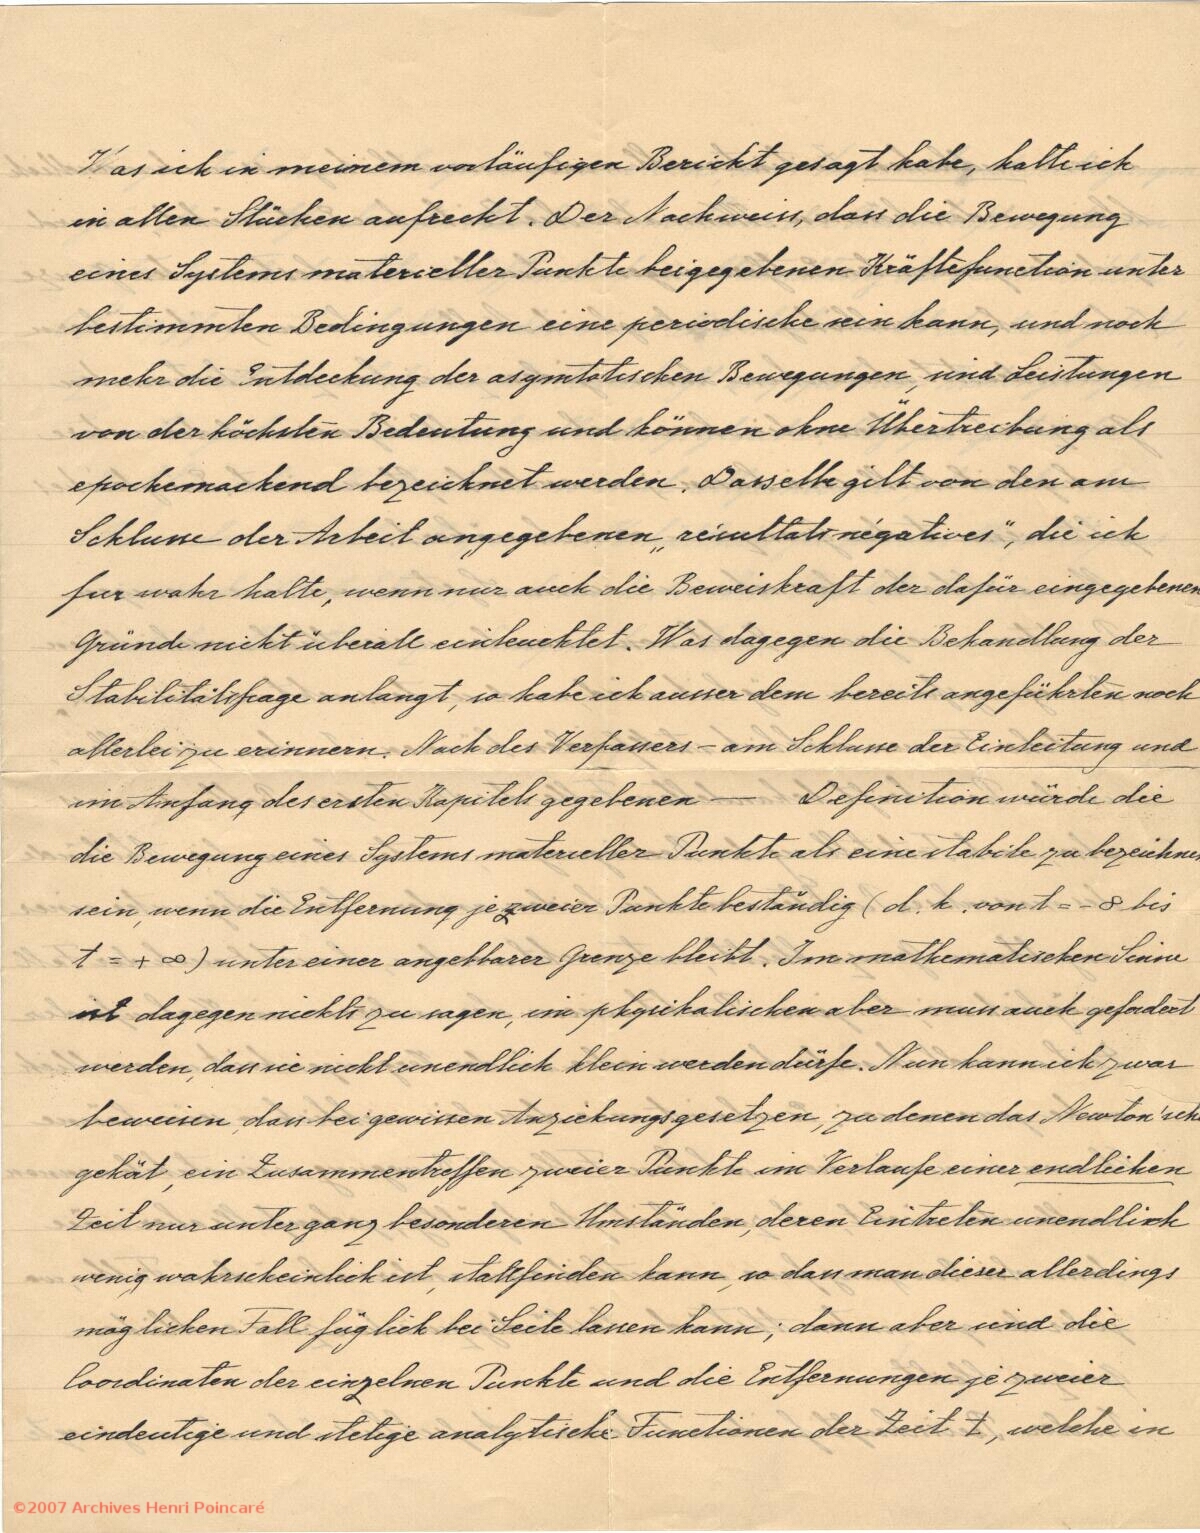 Was ich in meinem vorläufigen Bericht gesagt habe, halte ich
in allen Stücken aufrecht. Der Nachweiss, dass die Bewegung
eines Systems materieller Punkte bei gegebenen Kräftefunction unter
bestimmten Bedingungen eine periodische sein kann, und noch
mehr die Entdeckung der asymtotischen Bewegungen, sind Leistungen
von der höchsten Bedeutung und können ohne Übertreibung als
epochemachend bezeichnet werden. Dasselbe gilt von den am
Schlusse der Arbeit angegebenen „résultats négatives“, die ich
fur wahr halte, wenn nur auch die Beweiskraft der dafür eingegebenen
Gründe nicht überall einleuchtet. Was dagegen die Behandlung der
Stabilitätsfrage anlangt, so habe ich ausser dem bereits angeführten noch
allerlei zu erinnern. Nach des Verfassers – am Schlusse der Einleitung und
im Anfang des ersten Kapitels gegebenen — Definition würde die
die Bewegung eines Systems materieller Punkte als eine stabile zu bezeichnen
sein, wenn die Entfernung je zweier Punkte beständig (d. h. von t = - ∞ bis
t = + ∞) unter einer angebbarer Grenze bleibt. Im mathematischen Sinne
ist dagegen nichts zu sagen, im physikalischen aber muss auch gefordert
werden, dass sie nicht unendlich klein werden dürfe. Nun kann ich zwar
beweisen, dass bei gewissen Anziehungsgesetzen, zu denen das Newton'sche
gehöt, ein Zusammentreffen zweier Punkte im Verlaufe einer endlichen
Zeit nur unter ganz besonderen Umständen, deren Eintreten unendlich
wenig wahrscheinlich ist, stattfinden kann, so dass man dieser allerdings
möglichen Fall füglich bei Seite lassen kann; dann aber sind die
Coordinaten der einzelnen Punkte und die Entfernungen je zweier
eindeutige und stetige analytische Functionen der Zeit t, welche in
©2007 Archives Henri Poincaré